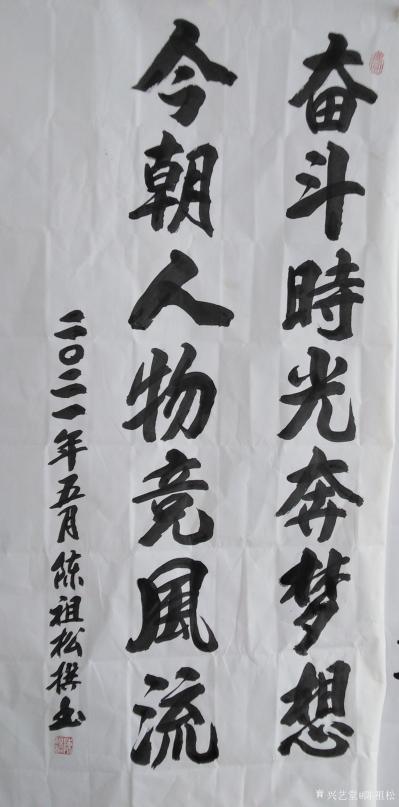 奋斗時光奔梦想
今朝人物竞風流
二〇二一年五月陈祖松撰书
兴艺堂@陈祖松